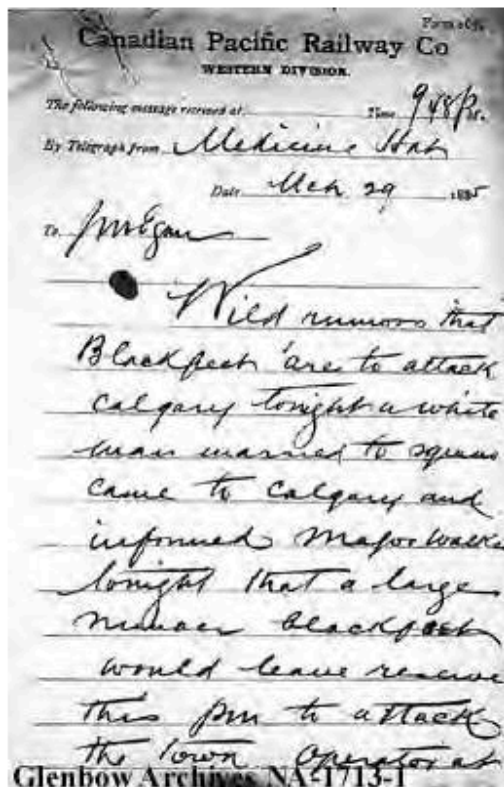 Form
Canadian Pacific Railway Co
WESTERN DIVISION.
The following message received at Time 9 48 PM.
By Telegraph from Medicine Hat
Date Mch 29 1885
To JM Egan
Wild rumors that
Blackfeet are to attack
Calgary tonight a white
man married to squaw
came to Calgary and
informed Major Walker
tonight that a large
number blackfeet
would leave reserve
this pm to attack
the town operator at
Glenbow Archives NA-1713-1